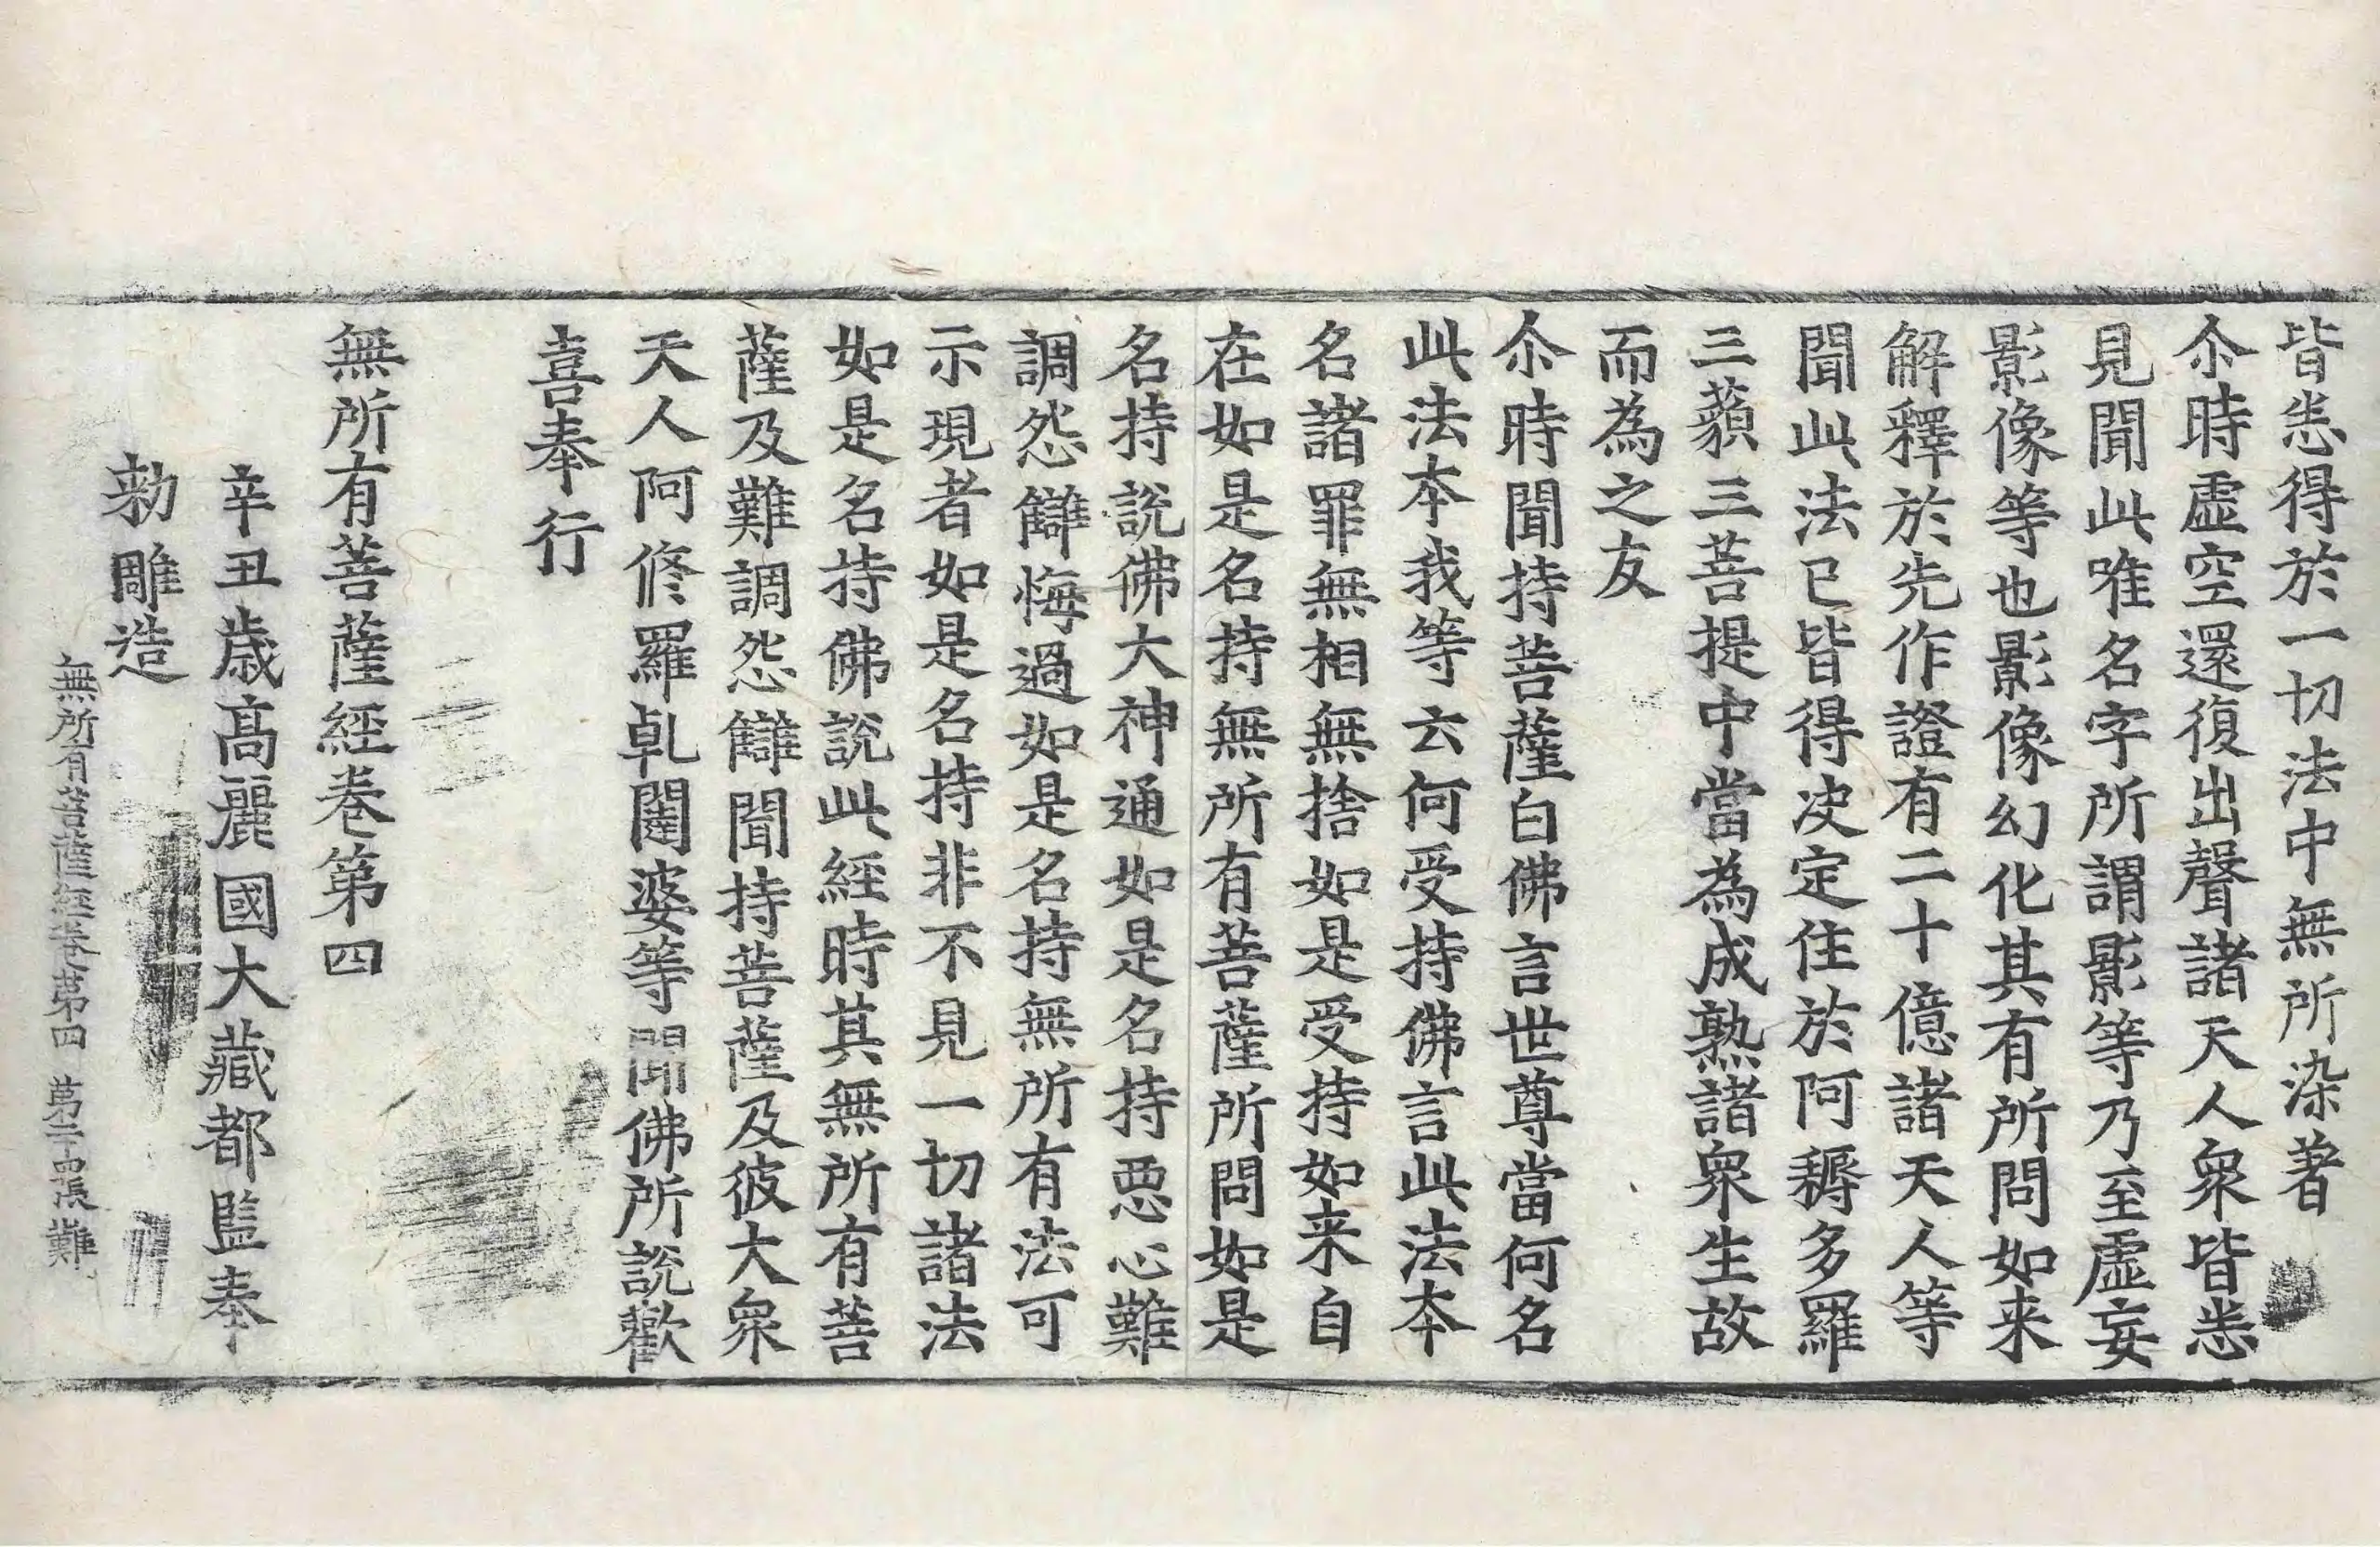 皆悉得於一切法中無所染著
尒時虛空還復出聲諸天人衆皆悉
見聞此唯名字所謂影等乃至虛妄
影像等也影像幻化其有所問如来
解釋於先作證有二十億諸天人等
聞此法已皆得决定住於阿耨多羅
三藐三菩提中當為成熟諸衆生故
而為之友
尒時聞持菩薩白佛言世尊當何名
此法本我等云何受持佛言此法本
名諸罪無相無捨如是受持如来自
在如是名持無所有菩薩所問如是
名持說佛大神通如是名持惡心難
調怨讎悔過如是名持無所有法可
示現者如是名持非不見一切諸法
如是名持佛說此經時其無所有菩
薩及難調怨讎聞持菩薩及彼大衆
天人阿修羅乹闥婆等聞佛所說歡
喜奉行
無所有菩薩經卷第四
辛丑歲高麗國大藏都監奉
勑雕造
無所有菩薩經卷第四 第二十四張 難